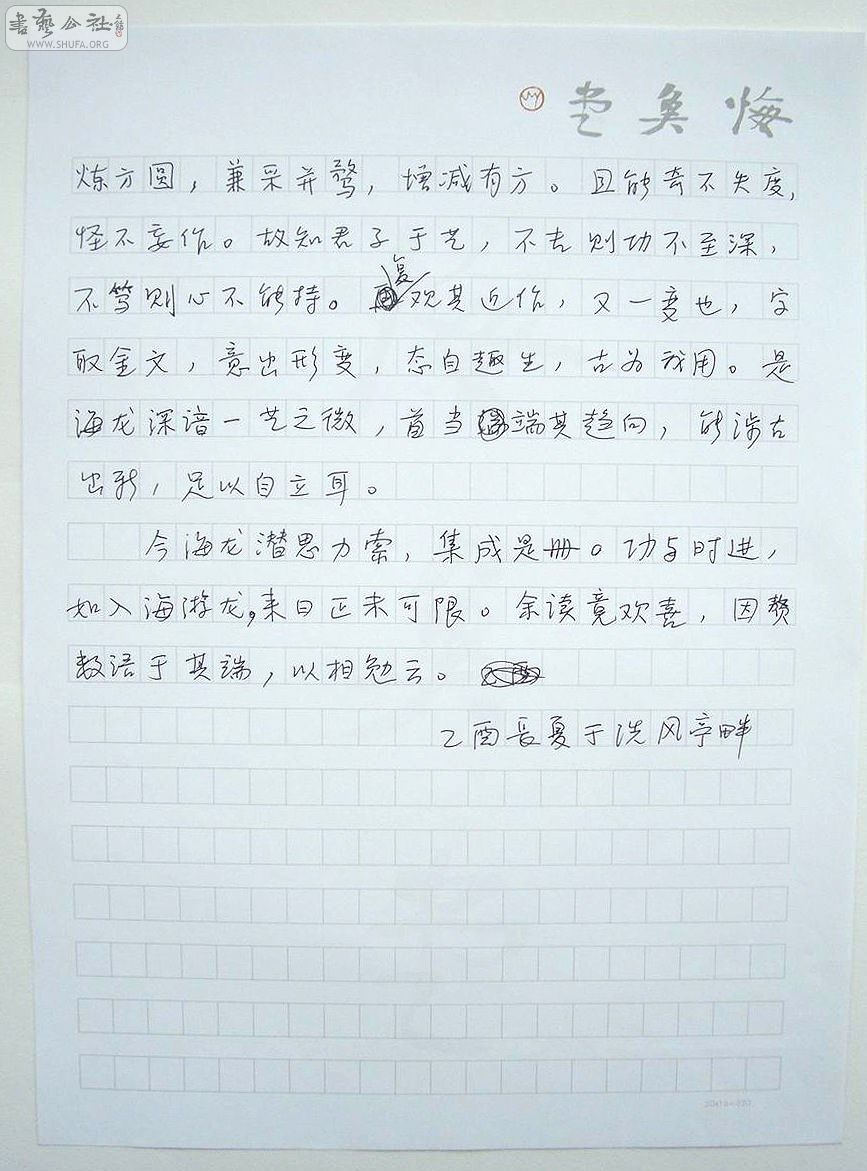 书艺公社
WWW.SHUFA.ORG
悔奂堂
炼方圆，兼采并骛，增减有方。且能奇不失度，
怪不妄作。故知君子于艺，不专则功不至深，
不笃则心不能持。复观其近作，又一变也，字
取金文，意出形变，态自趣生，古为我用。是
海龙深谙一艺之微，首当端其趋向，能涉古
出新，足以自立耳。
今海龙潜思力索，集成是册。功与时进，
如入海游龙，来日正未可限。余读竟欢喜，因赘
数语于其端，以相勉云。
乙酉长夏于洗风亭畔